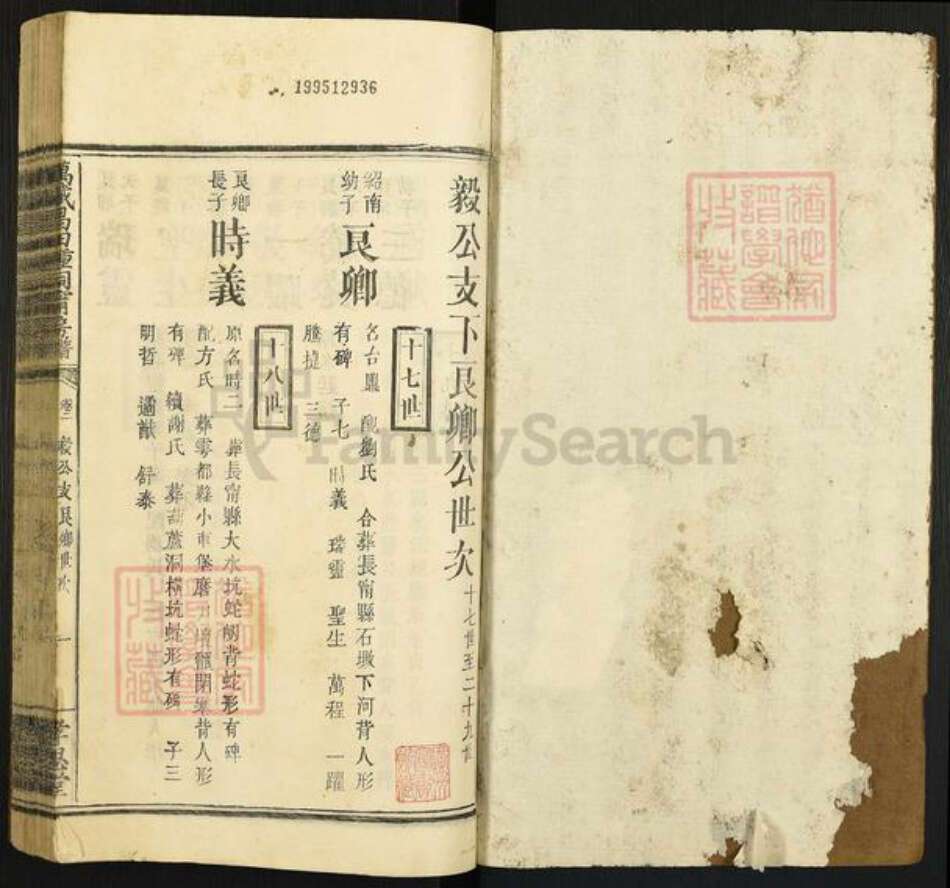 199512936
毅公支下艮卿公世次 十七世至二十九世
十七世
紹南
幼子
艮卿
名台鼎 配劉氏 合葬長甯縣石墩下河背人形
有碑 子七 時義 瑞靈 聖生 萬程 一躍
騰捷 三德
十八世
艮卿
長子
時義
原名時二 葬長甯縣大水坑蛇形背蛇形有碑
配方氏 葬雩都縣小車堡 人形
有碑 續謝氏 葬 蘆洞橫坑蛇形有碑 子三
明哲 遹猷 舒泰
卷二 毅公支艮卿世次 一
孝思堂
FamilySearch
譜學會
收藏